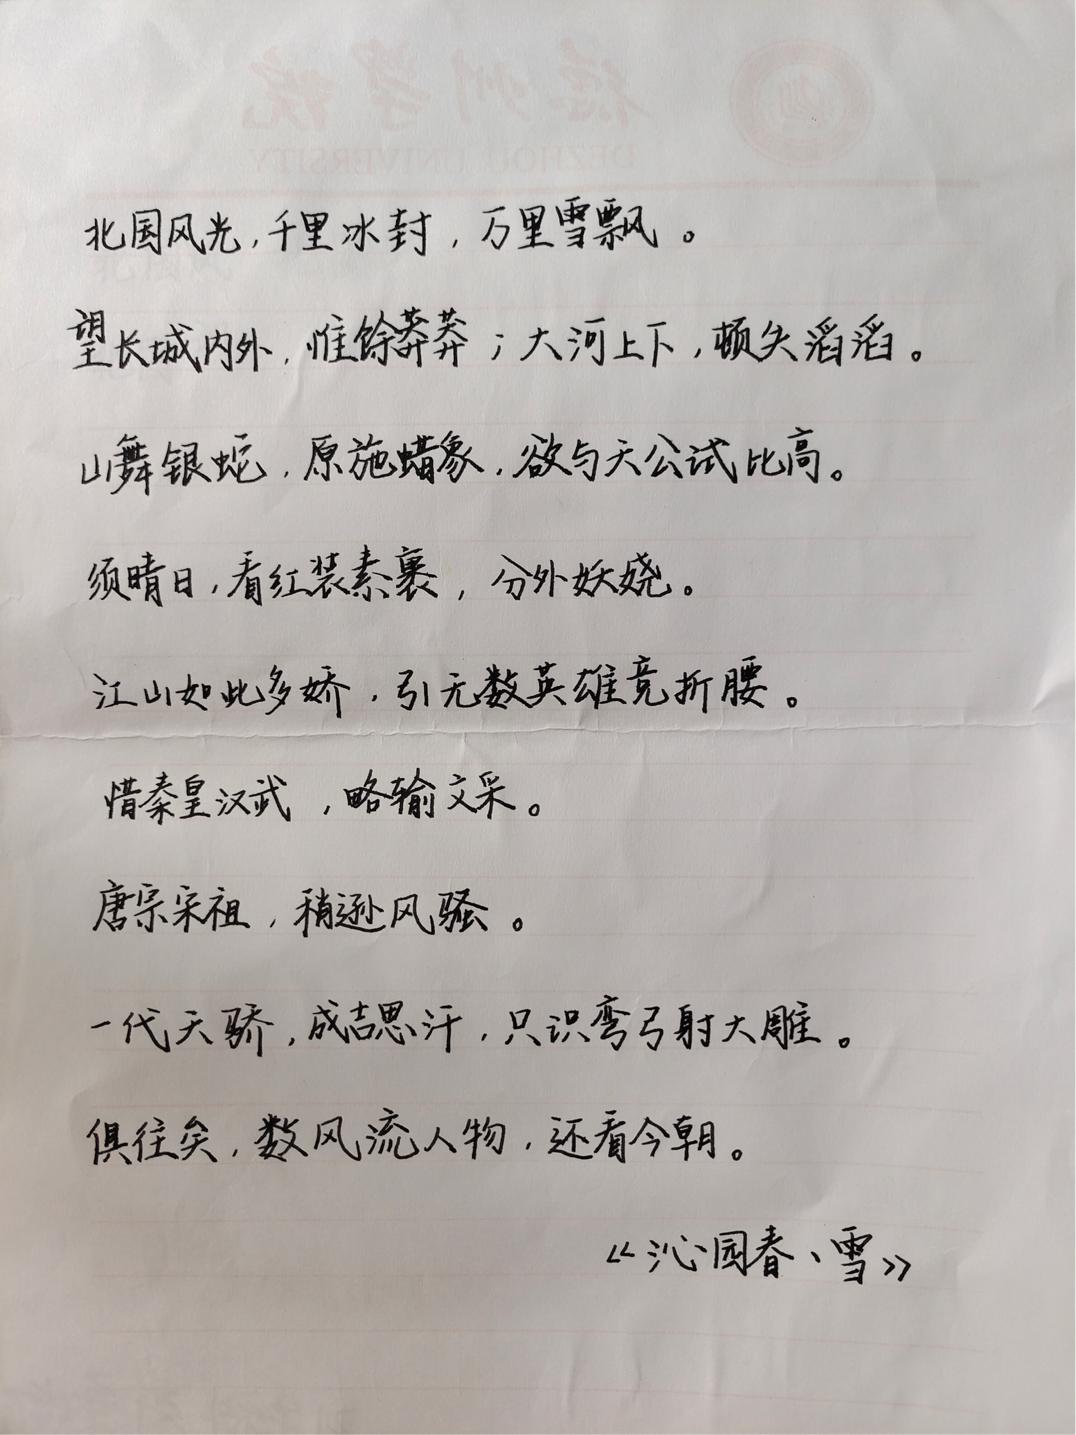 北国风光,千里冰封,万里雪飘。
望长城内外,惟馀莽莽;大河上下,顿失滔滔。
山舞银蛇,原施蜡象,欲与天公试比高。
须晴日,看红装素裹,分外妖娆。
江山如此多娇,引无数英雄竞折腰。
惜秦皇汉武,略输文采。
唐宗宋祖,稍逊风骚。
一代天骄,成吉思汗,只识弯弓射大雕。
俱往矣,数风流人物,还看今朝。
《沁园春、雪》